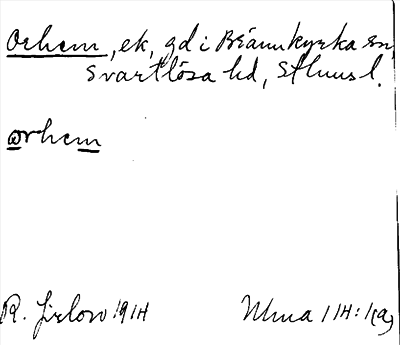 Orhem, ek, gd i Brännkyrka sn,
Svartlösa hd, Sthms l.
orhem
R. Jirlow 1914